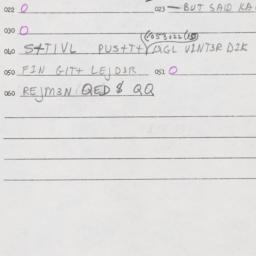 022 O 023 — BUT SAID KA
030 O
040 S+TIVL PUS+T+ DGL VINT3R DIK
050 FIN GIT+ LEJD3R 051 O
060 REJM3N QED $ QQ